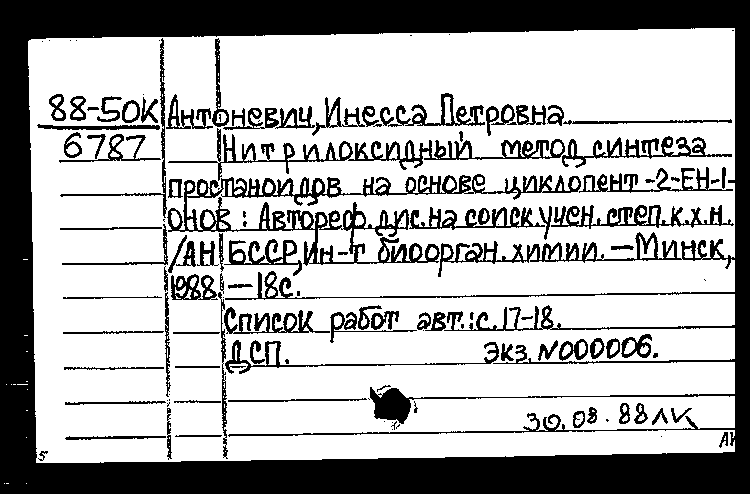 88-50К Антоневич, Инесса Петровна
6787 Нитрилоксидный метод синтеза
простаноидов на основе циклопент-2-ЕН-1-
ОНОВ : Автореф. дис. на соиск. учен. степ. к.х.н.
/АН БССР, Ин-т биоорган. химии. — Минск,
1988. — 18с.
Список работ авт.: с. 17-18.
ДСП. Экз. N000006.
30.08.88ЛК